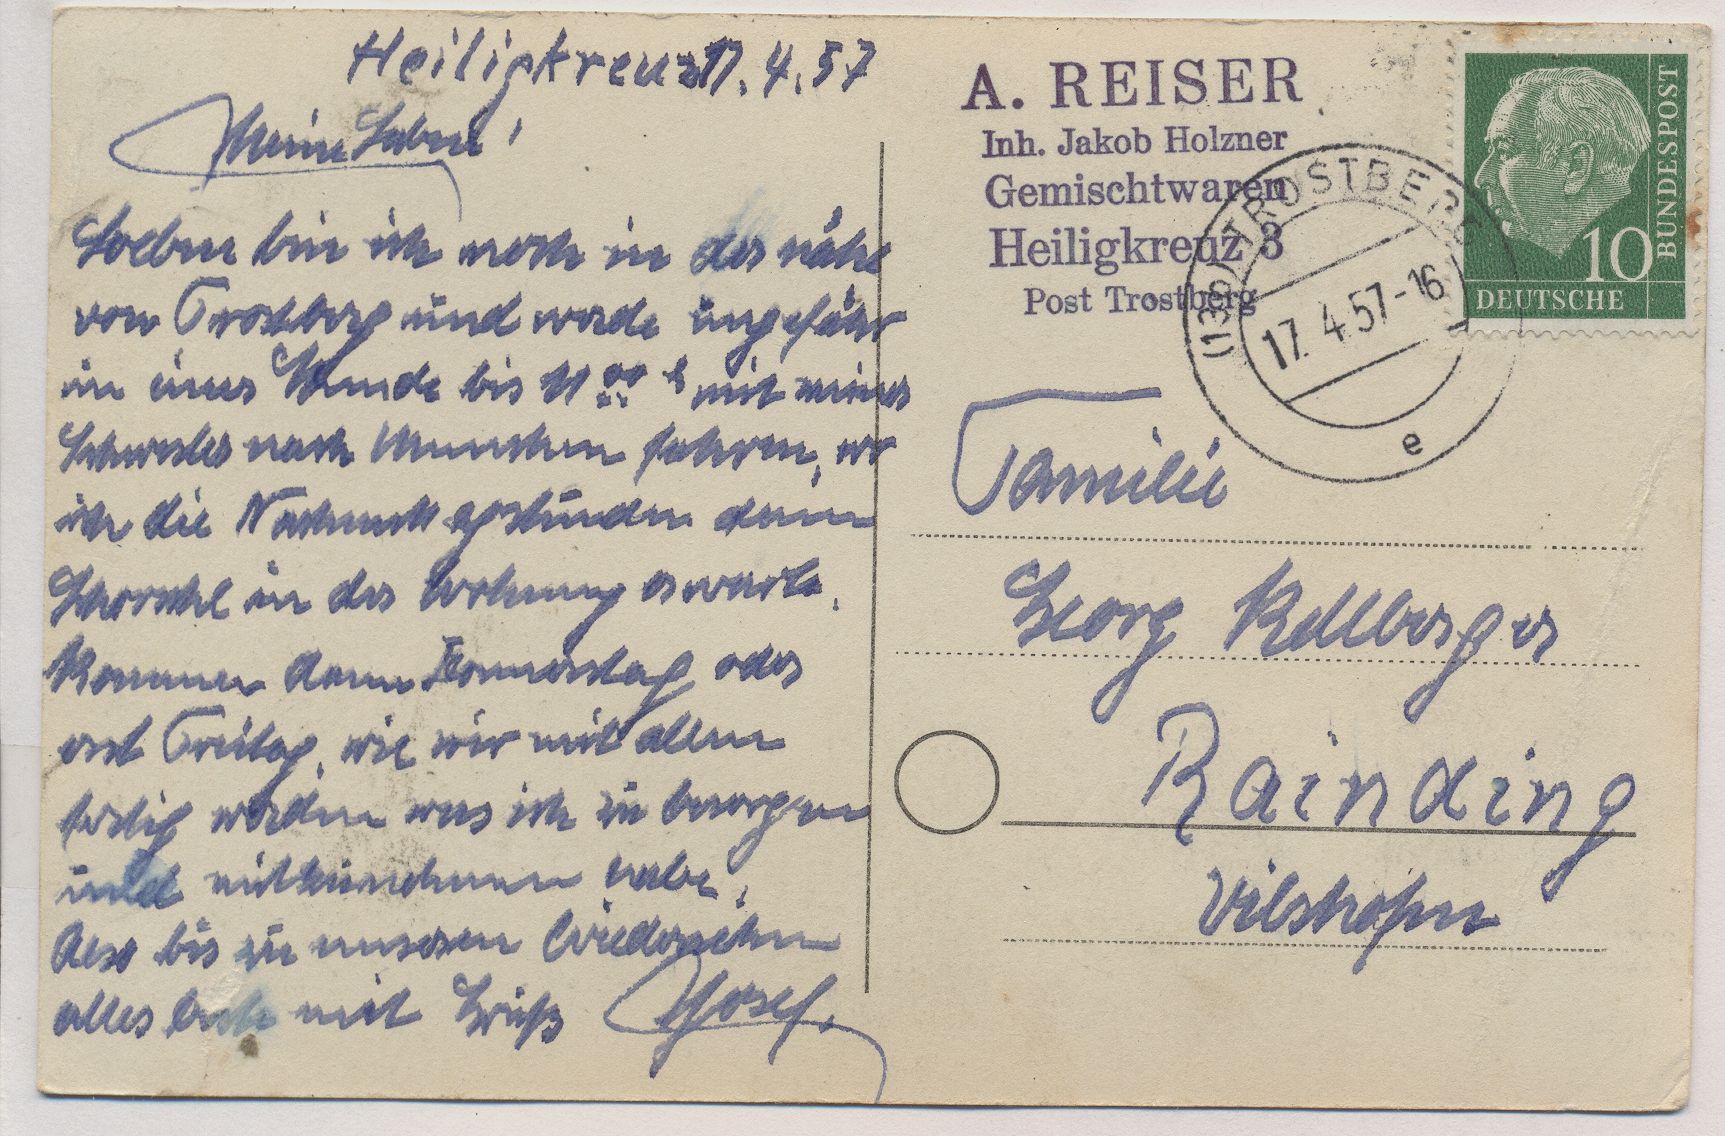 Heiligkreuz 17.4.57
Meine Lieben!
Soeben bin ich noch in der nähe
von Trostberg und werde ungefähr
in einer Stunde bis 11 00 h mit meiner
Schwester nach München fahren, wo
ich die Nachmittagstunden dein
Schorschl in der Wohnung erwarte.
Kommen dann Donnerstag oder
erst Freitag, wie wir mit allem
fertig werden was ich zu besorgen
und mitzunehmen habe.
Also bis zu unseren Wiedersehn
alles Gute mit Grüß Josef.
A. REISER
Inh. Jakob Holzner
Gemischtwaren
Heiligkreuz 3
Post Trostberg
(13b) TROSTBERG
17.4.57-16
e
10
BUNDESPOST
DEUTSCHE
Familie
Georg Kellberger
Rainding
Vilshofen